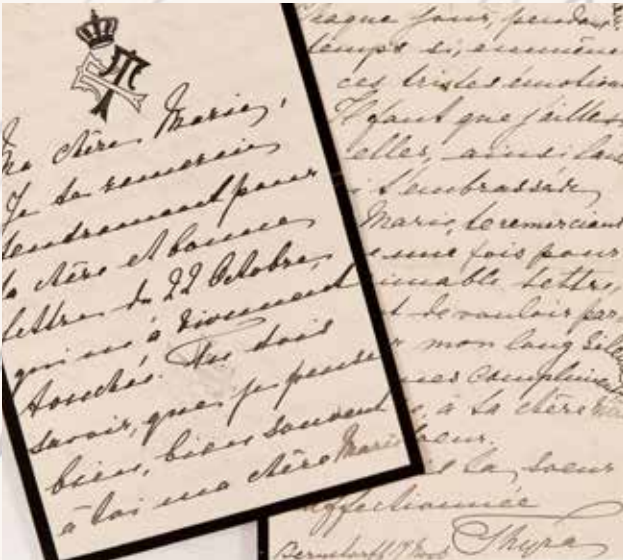 Ma chère Marie,
Je te remercie
tendrement pour
ta chère et bonne
lettre du 22 Octobre,
qui m'a vivement
touchée. Tu dois
savoir, que je pense
bien, bien souvent
à toi ma chère Marie
chaque jour, pendant
temps si,
ces tristes émotions
Il faut que j'aille
elles, ainsi
t'embrassée
Marie, te remerciant
une fois pour
aimable lettre,
et de vouloir par
mon long sil
mes complimen
à ta chère
soeur.
ta soeur
affectionnée
Thyra